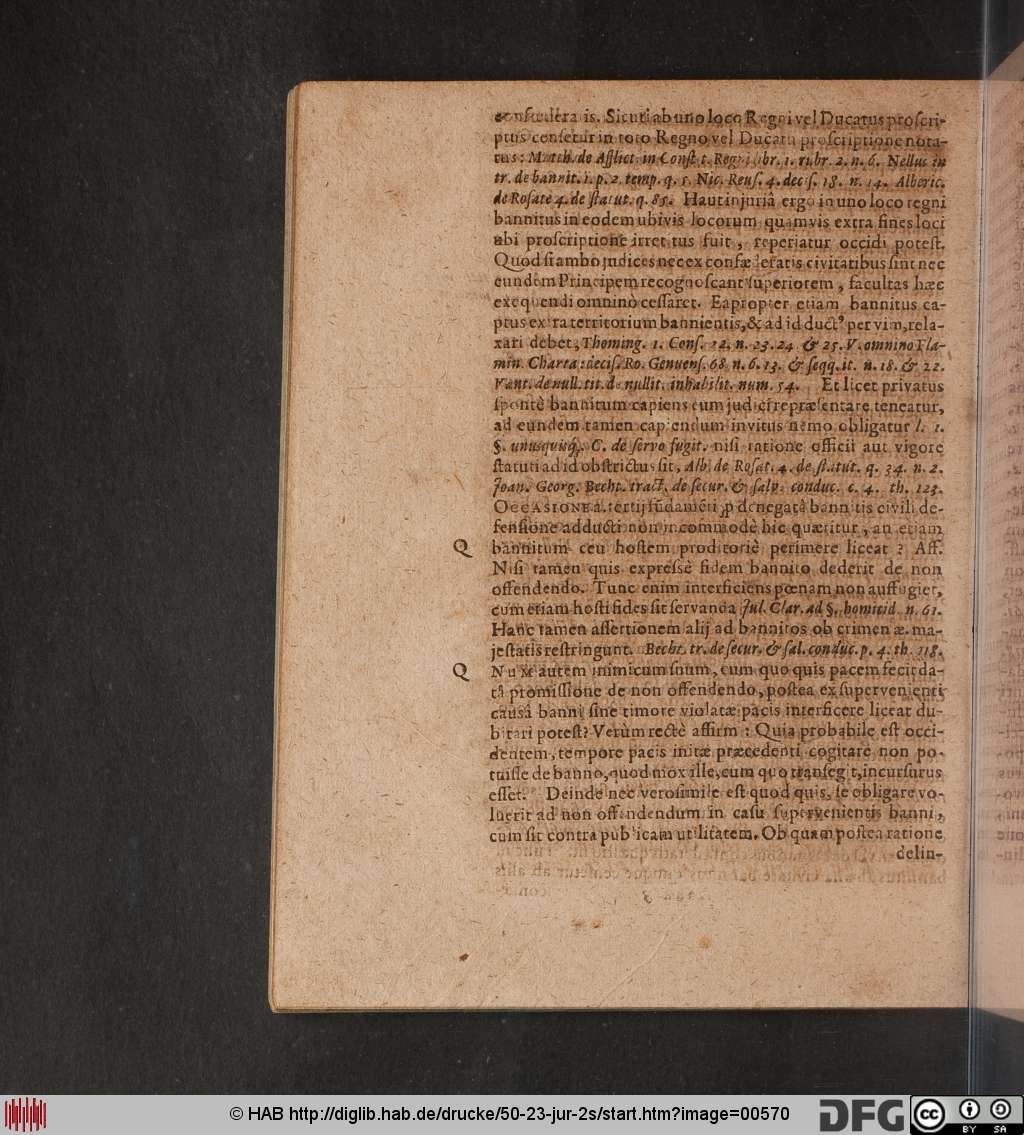 confœdera is. Sicuti ab uno loco Regni vel Ducatus proscri-
ptus censetur in toto Regno vel Ducatu proscriptione nota-
tus: Matth. de Afflict. in Const. Regni libr. 1. rubr. 2. n. 6. Nellus in
tr. de bannit. 1. p. 2. temp. q. 5. Nic. Reus. 4. decis. 18. n. 14. Alberic.
de Rosate 4. de statut. q. 85. Haut injuriâ ergo in uno loco regni
bannitus in eodem ubivis locorum quamvis extra fines loci
ubi proscriptione irretitus fuit, reperiatur occidi potest.
Quod si ambo judices nec ex confæderatis civitatibus sint nec
eundem Principem recognoscant superiorem, facultas hæc
exequendi omninò cessaret. Eapropter etiam bannitus ca-
ptus extra territorium bannientis, & ad id duct⁹ per vim, rela-
xari debet, Thoming. 1. Cons. 22. n. 23. 24 & 25. V. omnino Fla-
min. Chartar: decis. Ro. Genuens. 68. n. 6. 13. & seqq. it. n. 18. & 22.
Vant. de null. tit. de nullit. inhabilit. num. 54. Et licet privatus
spontè bannitum capiens eum judici repræsentare teneatur,
ad eundem tamen capiendum invitus nemo obligatur l. 1.
§. unusquisq;. C. de servo fugit. nisi ratione officii aut vigore
statuti ad id obstrictus sit, Alb. de Rosat. 4. de statut. q. 34. n. 2.
Joan. Georg. Becht. tract. de secur. & salv. conduc. c. 4. th. 123.
OCCASIONE â tertij fūdamēti ꝓ denegatâ bannitis civili de-
fensione adducti non incommodè hic quæritur, an etiam
Q bannitum ceu hostem proditoriè perimere liceat? Aff.
Nisi tamen quis expressè fidem bannito dederit de non
offendendo. Tunc enim interficiens pœnam non auffugiet,
cum etiam hosti fides sit servanda Jul. Clar. ad §. homicid. n. 61.
Hanc tamen assertionem alij ad bannitos ob crimen æ. ma-
jestatis restringunt. Becht. tr. de secur. & sal. conduc. p. 4. th. 118.
Q NUM autem inimicum suum, cum quo quis pacem fecit da-
tâ promissione de non offendendo, postea ex supervenienti
causâ banni sine timore violatæ pacis interficere liceat du-
bitari potest? Verùm rectè affirm: Quia probabile est occi-
dentem, tempore pacis initæ præcedenti cogitare non po-
tuisse de banno, quod mox ille, cum quo transegit, incursurus
esset. Deinde nec verosimile est quod quis, se obligare vo-
luerit ad non offendendum in casu supervenientis banni,
cum sit contra publicam utilitatem. Ob quam postea ratione
delin-
© HAB http://diglib.hab.de/drucke/50-23-jur-2s/start.htm?image=00570
DFG
cc BY SA